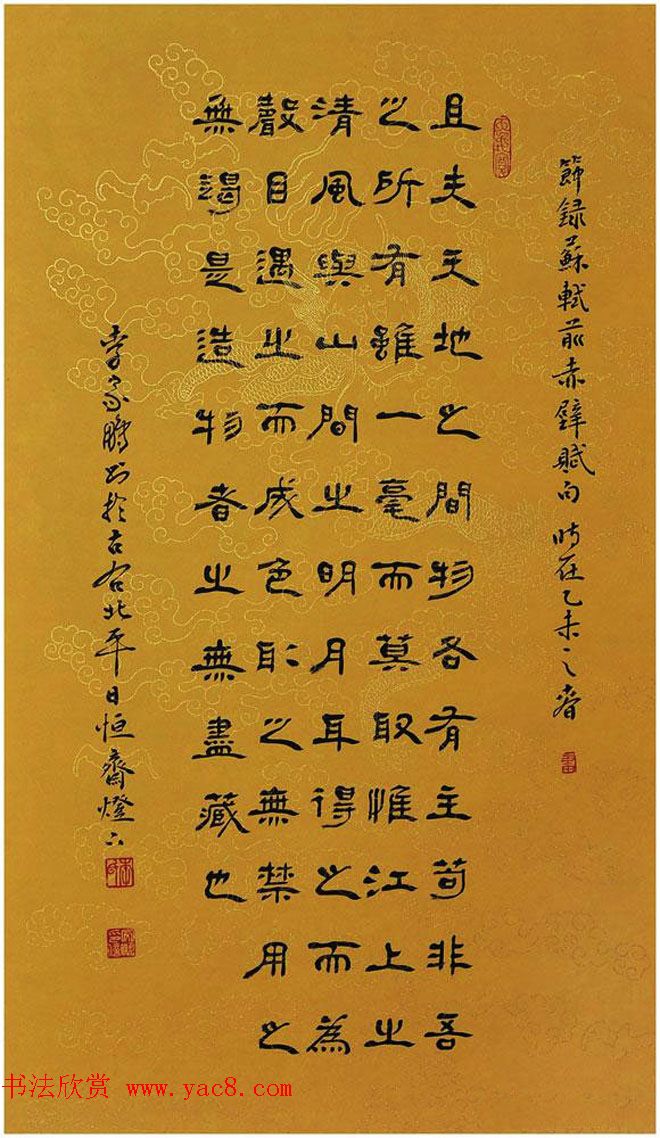 節録蘇軾前赤壁賦句 時在乙未之春
且夫天地之間物各有主苟非吾
之所有雖一毫而莫取惟江上之
清風與山間之明月耳得之而為
聲目遇之而成色取之無禁用之
無竭是造物者之無盡藏也
李家鵬书於古北平日恒齋燈下
书法欣赏 www.yac8.com